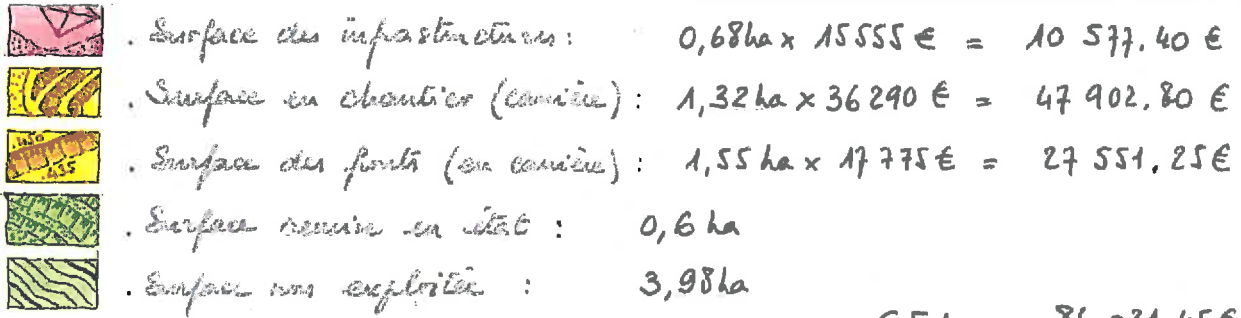 . Surface des infrastructures : 0,68ha x 15555 € = 10 577.40 €
. Surface en chantier (carrière) : 1,32ha x 36290 € = 47 902.80 €
.450
.435
. Surface des fronts (en carrière) : 1,55 ha x 17 775 € = 27 551.25 €
. Surface remise en état : 0,6 ha
. Surface non exploitée : 3,98ha